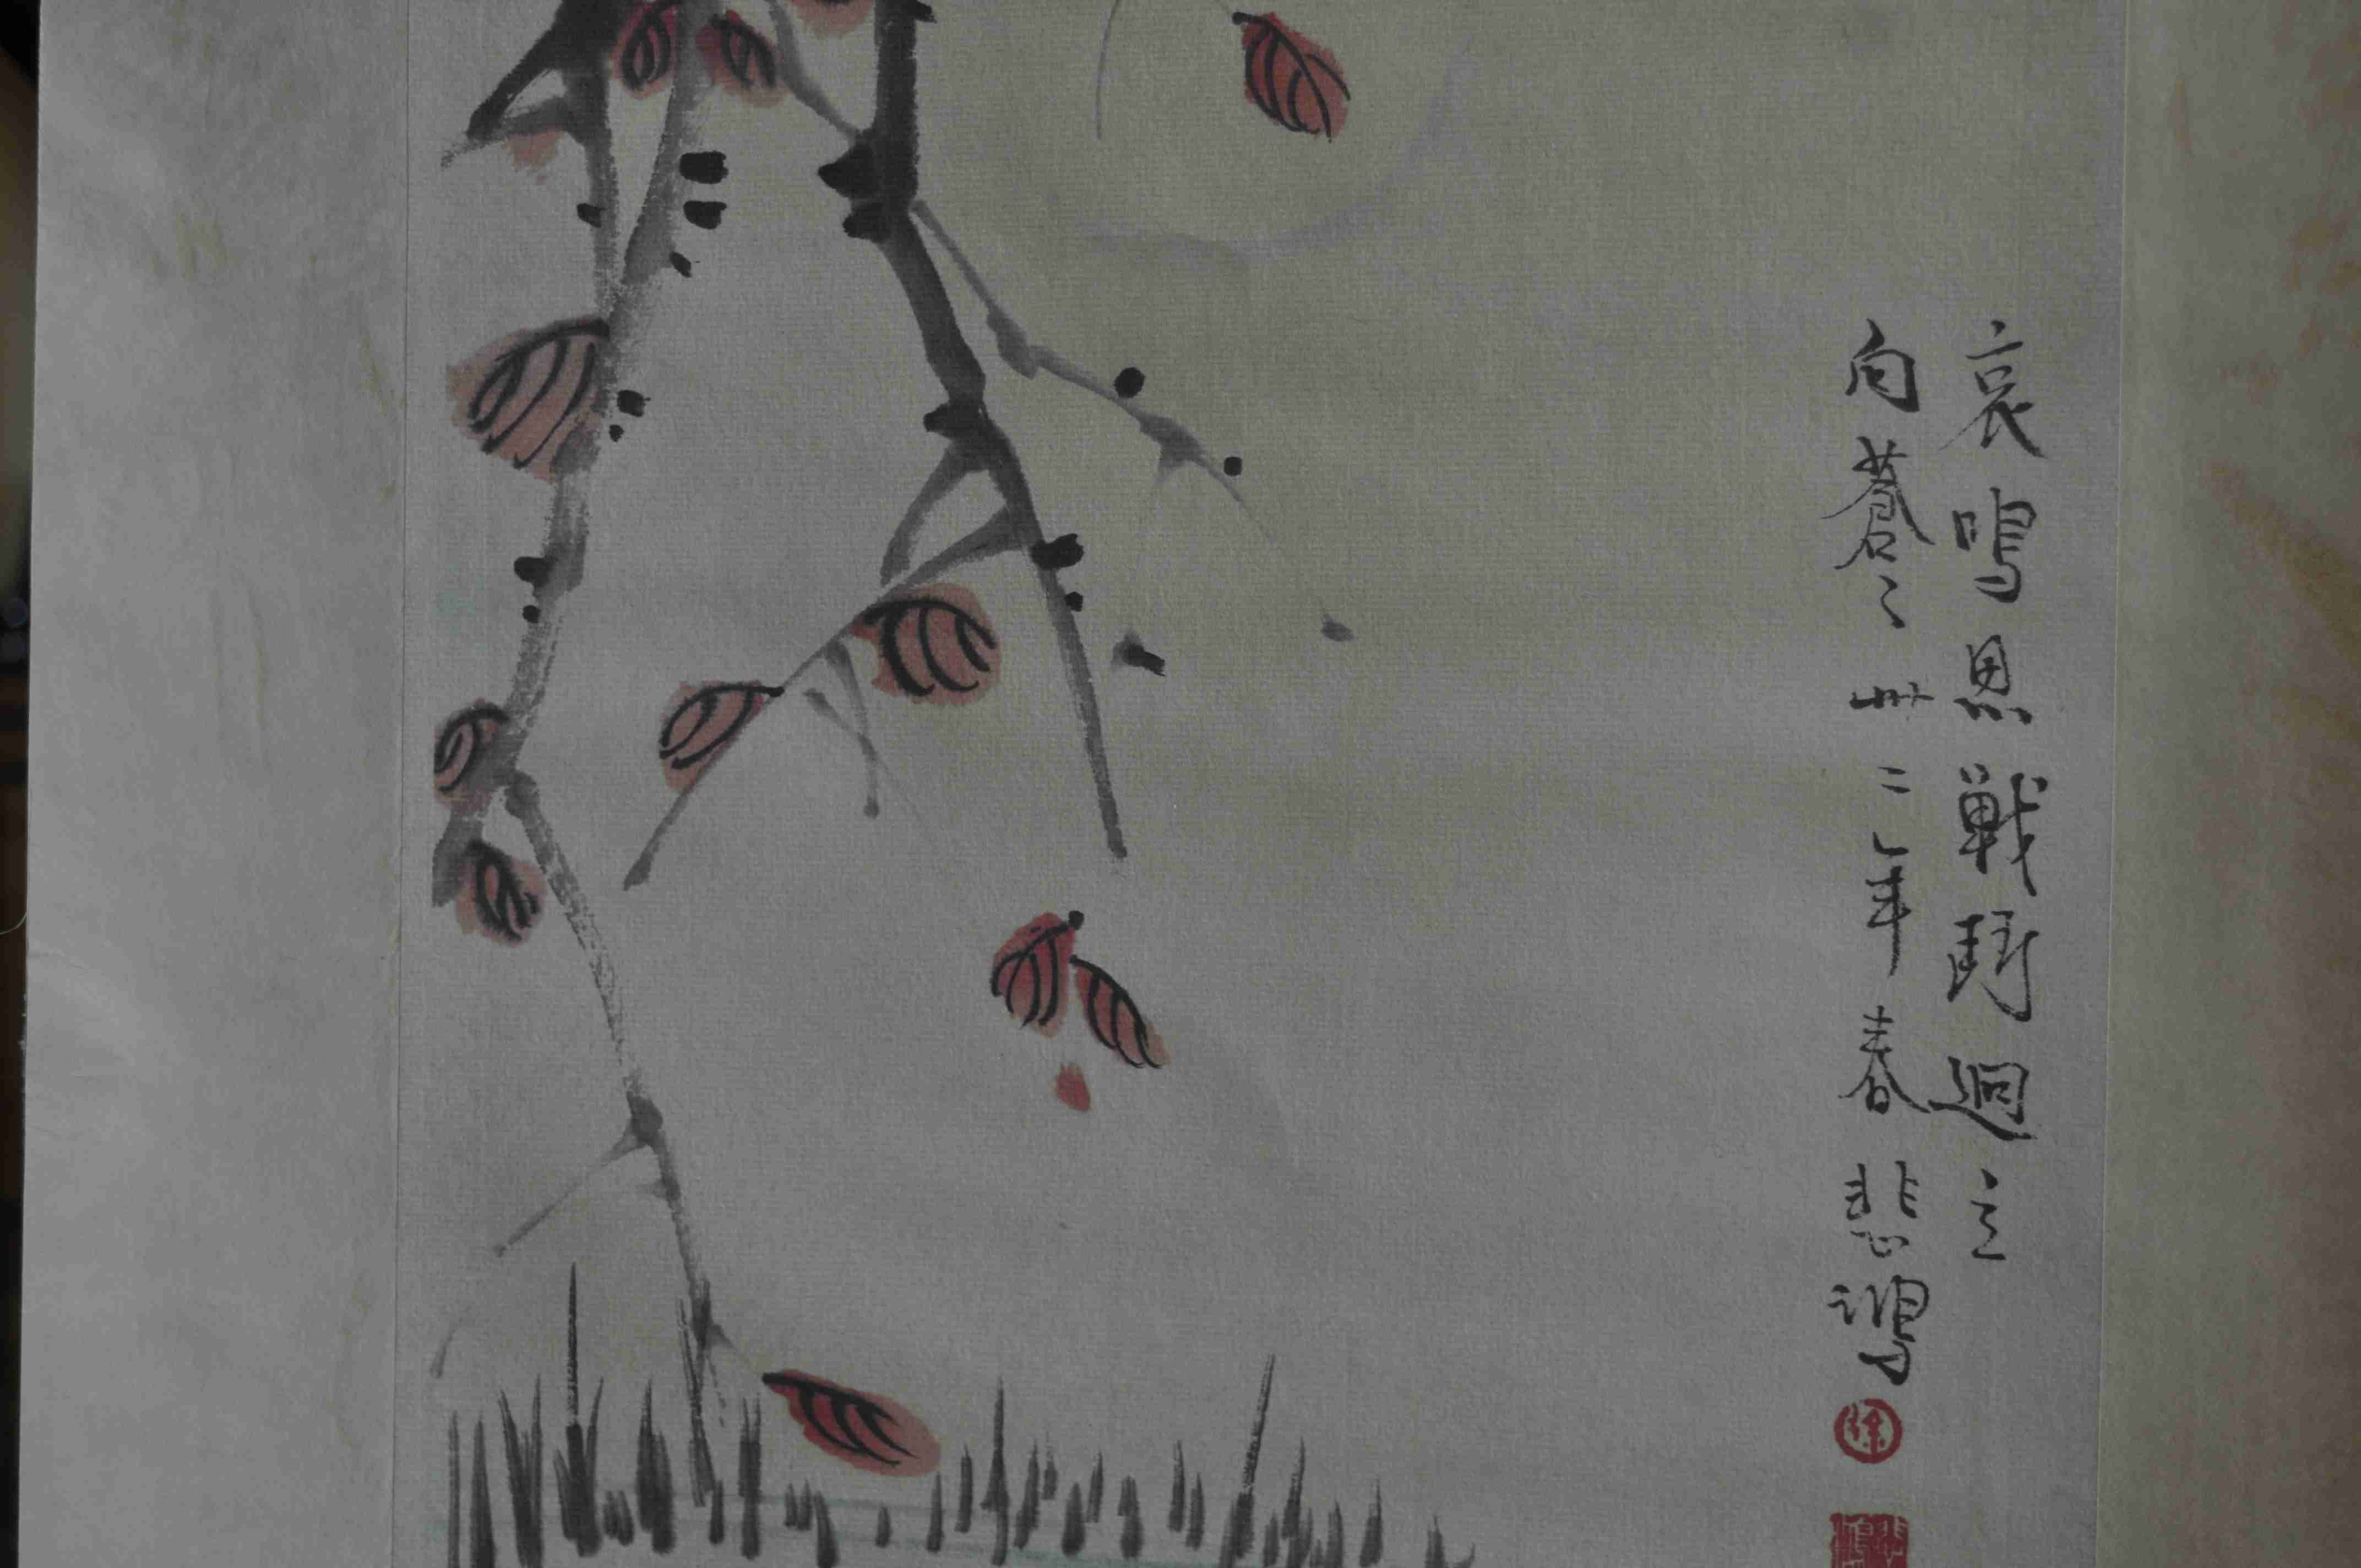 哀鳴思戰鬥迥立
向蒼〻卅二年春悲鴻
徐
悲鴻